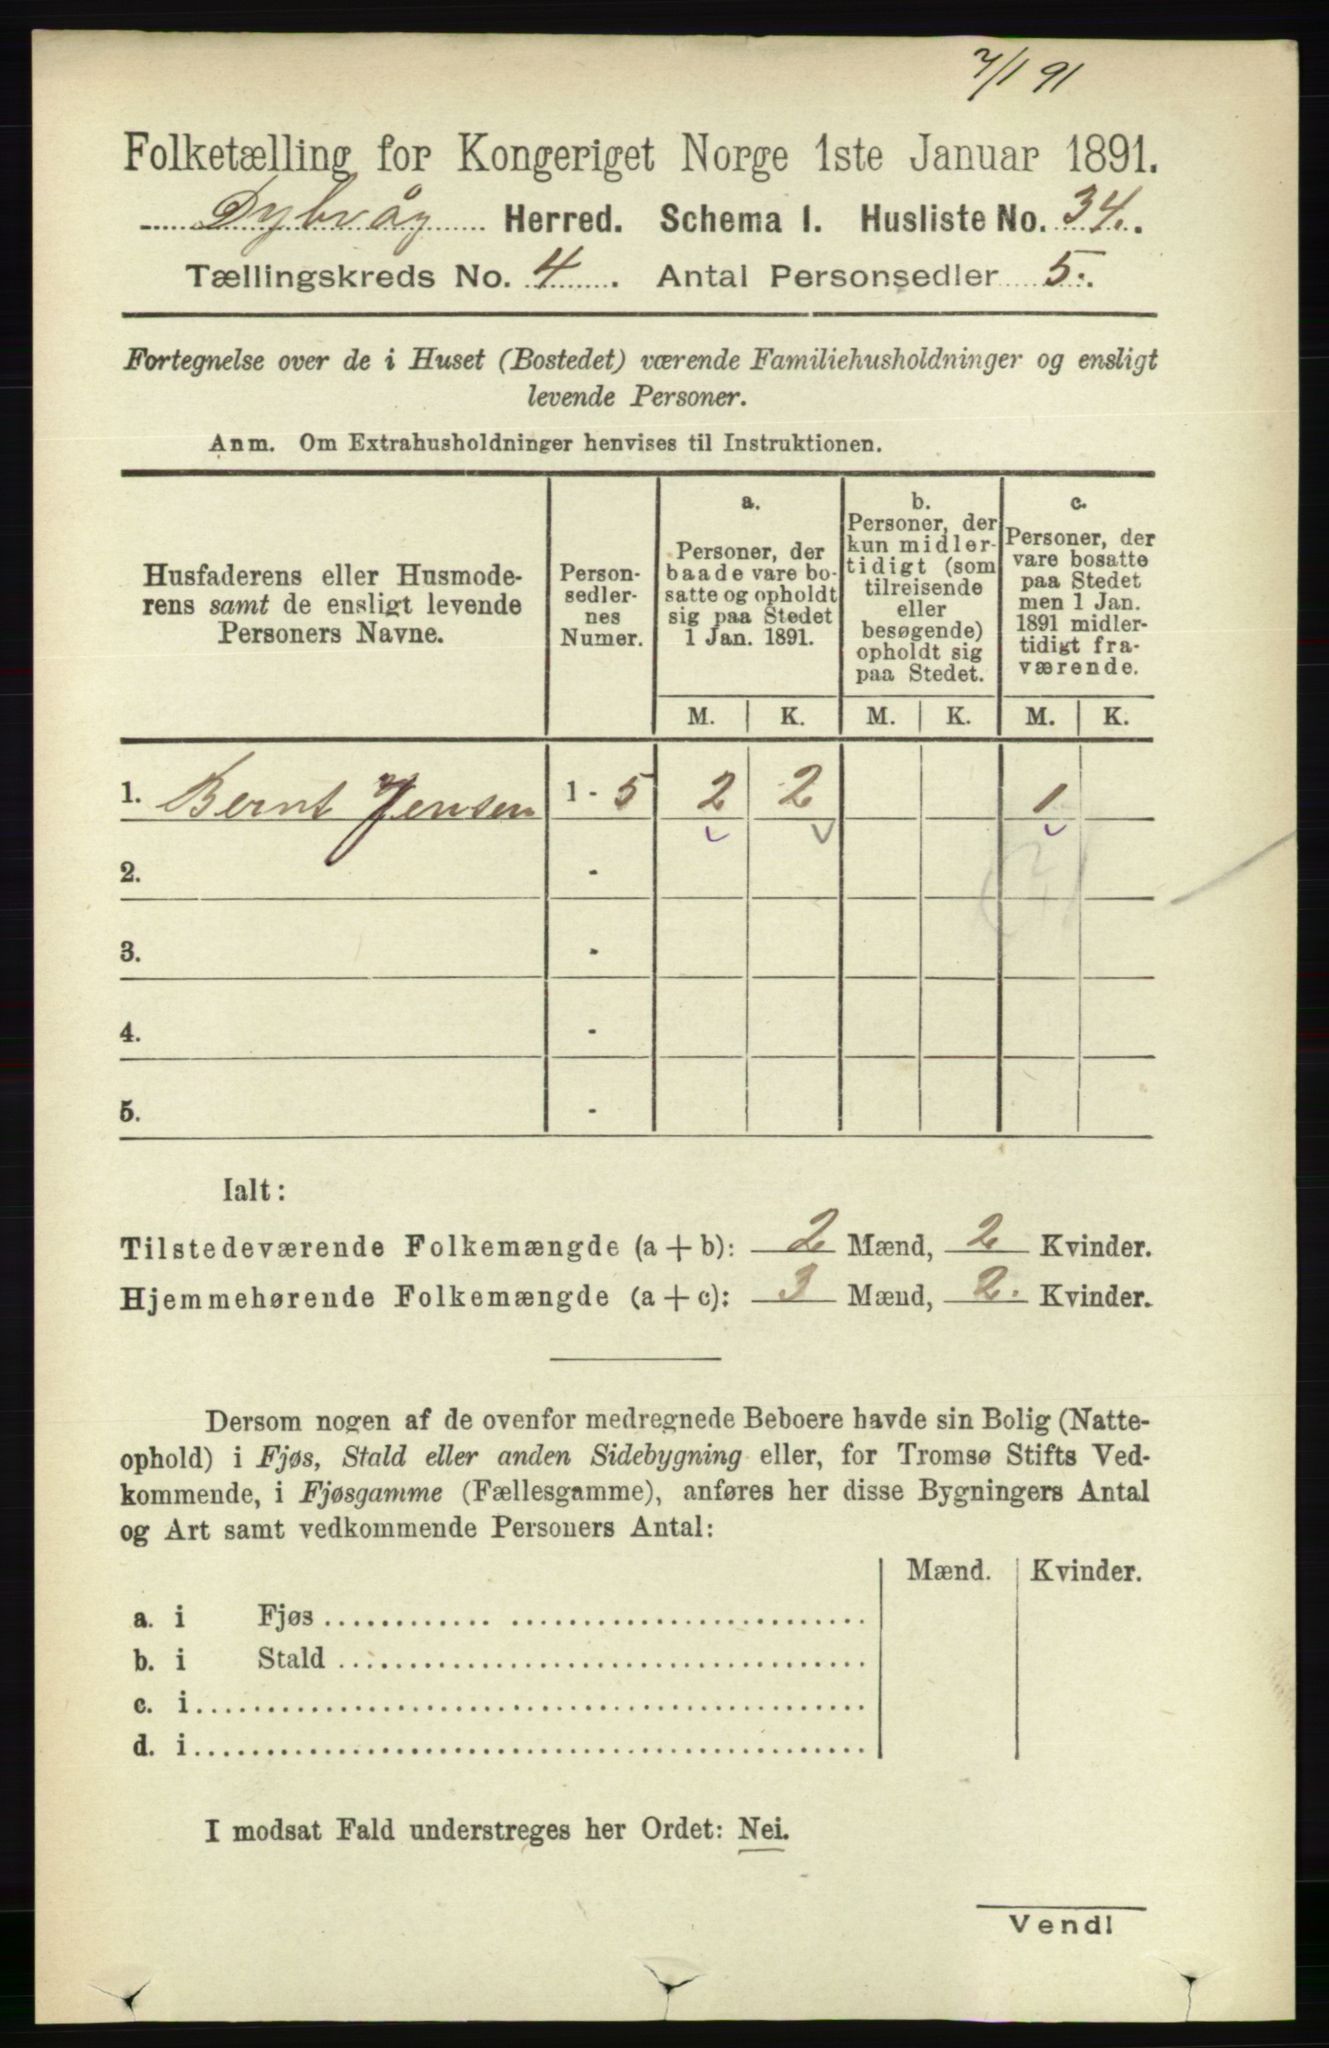 7/1 91
Folketælling for Kongeriget Norge 1ste Januar 1891.
Dybvåg Herred. Schema I. Husliste No. 34.
Tællingskreds No. 4. Antal Personsedler 5.
Fortegnelse over de i Huset (Bostedet) værende Familiehusholdninger og ensligt
levende Personer.
Anm. Om Extrahusholdninger henvises til Instruktionen.
Husfaderens eller Husmode-
rens samt de ensligt levende
Personers Navne.
Person-
sedler-
nes
Numer.
a.
Personer, der
baade vare bo-
satte og opholdt
sig paa Stedet
1 Jan. 1891.
b.
Personer, der
kun midler-
tidigt (som
tilreisende
eller
besøgende)
opholdt sig
paa Stedet.
c.
Personer, der
vare bosatte
paa Stedet
men 1 Jan.
1891 midler-
tidigt fra-
værende.
M. K. M. K. M. K.
1. Bernt Jensen 1 - 5 2 2 1
2. -
3. -
4. -
5. -
Ialt:
Tilstedeværende Folkemængde (a + b): 2 Mænd, 2 Kvinder.
Hjemmehørende Folkemængde (a + c): 3 Mænd, 2. Kvinder.
Dersom nogen af de ovenfor medregnede Beboere havde sin Bolig (Natte-
ophold) i Fjøs, Stald eller anden Sidebygning eller, for Tromsø Stifts Ved-
kommende, i Fjøsgamme (Fællesgamme), anføres her disse Bygningers Antal
og Art samt vedkommende Personers Antal:
Mænd. Kvinder.
a. i Fjøs
b. i Stald
c. i
d. i
I modsat Fald understreges her Ordet: Nei.
Vend!